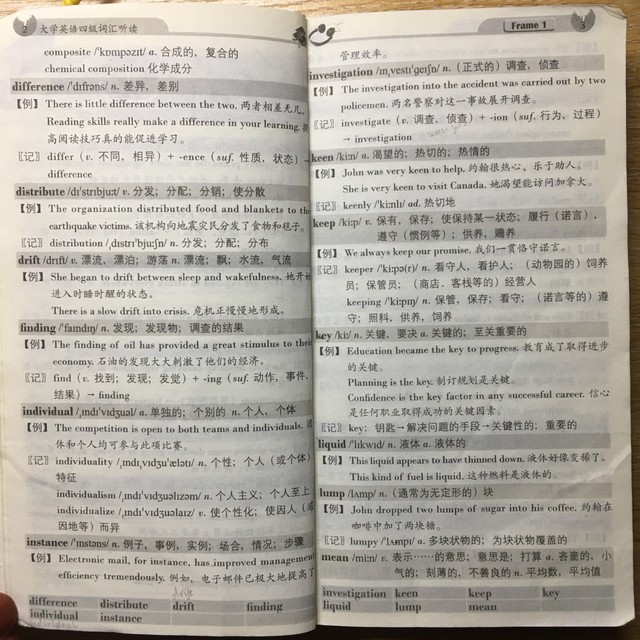 2 大学英语四级词汇听读
composite /'kɒmpəzɪt/ a. 合成的，复合的
chemical composition 化学成分
difference /'dɪfrəns/ n. 差异，差别
【例】 There is little difference between the two. 两者相差无几。
Reading skills really make a difference in your learning. 提
高阅读技巧真的能促进学习。
〖记〗 differ (v. 不同，相异) + -ence (suf. 性质，状态) →
difference
distribute /dɪ'strɪbjuːt/ v. 分发；分配；分销；使分散
【例】 The organization distributed food and blankets to the
earthquake victims. 该机构向地震灾民分发了食物和毯子。
〖记〗 distribution /ˌdɪstrɪ'bjuːʃn/ n. 分发；分配；分布
drift /drɪft/ v. 漂流，漂泊；游荡 n. 漂流；飘；水流，气流
【例】 She began to drift between sleep and wakefulness. 她开始
进入时睡时醒的状态。
There is a slow drift into crisis. 危机正慢慢地形成。
finding /'faɪndɪŋ/ n. 发现；发现物；调查的结果
【例】 The finding of oil has provided a great stimulus to their
economy. 石油的发现大大刺激了他们的经济。
〖记〗 find (v. 找到；发现；发觉) + -ing (suf. 动作，事件，
结果) → finding
individual /ˌɪndɪ'vɪdʒuəl/ a. 单独的；个别的 n. 个人，个体
【例】 The competition is open to both teams and individuals. 团
体和个人均可参与此项比赛。
〖记〗 individuality /ˌɪndɪˌvɪdʒu'ælətɪ/ n. 个性；个人（或个体）
特征
individualism /ˌɪndɪ'vɪdʒuəlɪzəm/ n. 个人主义；个人至上
individualize /ˌɪndɪ'vɪdʒuəlaɪz/ v. 使个性化；使因人（或
因地等）而异
instance /'ɪnstəns/ n. 例子，事例，实例；场合，情况；步骤
【例】 Electronic mail, for instance, has improved management
efficiency tremendously. 例如，电子邮件已极大地提高了
drift
difference distribute drift finding
individual instance
Frame 1 3
管理效率。
investigation /ɪnˌvestɪ'ɡeɪʃn/ n. （正式的）调查，侦查
【例】 The investigation into the accident was carried out by two
policemen. 两名警察对这一事故展开调查。
〖记〗 investigate (v. 调查，侦查) + -ion (suf. 行为，过程)
→ investigation
keen /kiːn/ a. 渴望的；热切的；热情的
【例】 John was very keen to help. 约翰很热心，乐于助人。
She is very keen to visit Canada. 她渴望能访问加拿大。
〖记〗 keenly /'kiːnlɪ/ ad. 热切地
keep /kiːp/ v. 保有，保存；使保持某一状态；履行（诺言），
遵守（惯例等）；供养，赡养
【例】 We always keep our promise. 我们一贯恪守诺言。
〖记〗 keeper /'kiːpə(r)/ n. 看守人，看护人；（动物园的）饲养
员；保管员；（商店、客栈等的）经营人
keeping /'kiːpɪŋ/ n. 保管，保存；看守；（诺言等的）遵
守；照料，供养，饲养
key /kiː/ n. 关键，要决 a. 关键的；至关重要的
【例】 Education became the key to progress. 教育成了取得进步
的关键。
Planning is the key. 制订规划是关键。
Confidence is the key factor in any successful career. 信心
是任何职业取得成功的关键因素。
〖记〗 key：钥匙→解决问题的手段→关键性的；重要的
liquid /'lɪkwɪd/ n. 液体 a. 液体的
【例】 This liquid appears to have thinned down. 液体好像变稀了。
This kind of fuel is liquid. 这种燃料是液体的。
lump /lʌmp/ n. （通常为无定形的）块
【例】 John dropped two lumps of sugar into his coffee. 约翰在
咖啡中加了两块糖。
〖记〗 lumpy /'lʌmpɪ/ a. 多块状物的；为块状物覆盖的
mean /miːn/ v. 表示……的意思；意思是；打算 a. 吝啬的，小
气的；刻薄的，不善良的 n. 平均数，平均值
investigation keen keep key
liquid lump mean